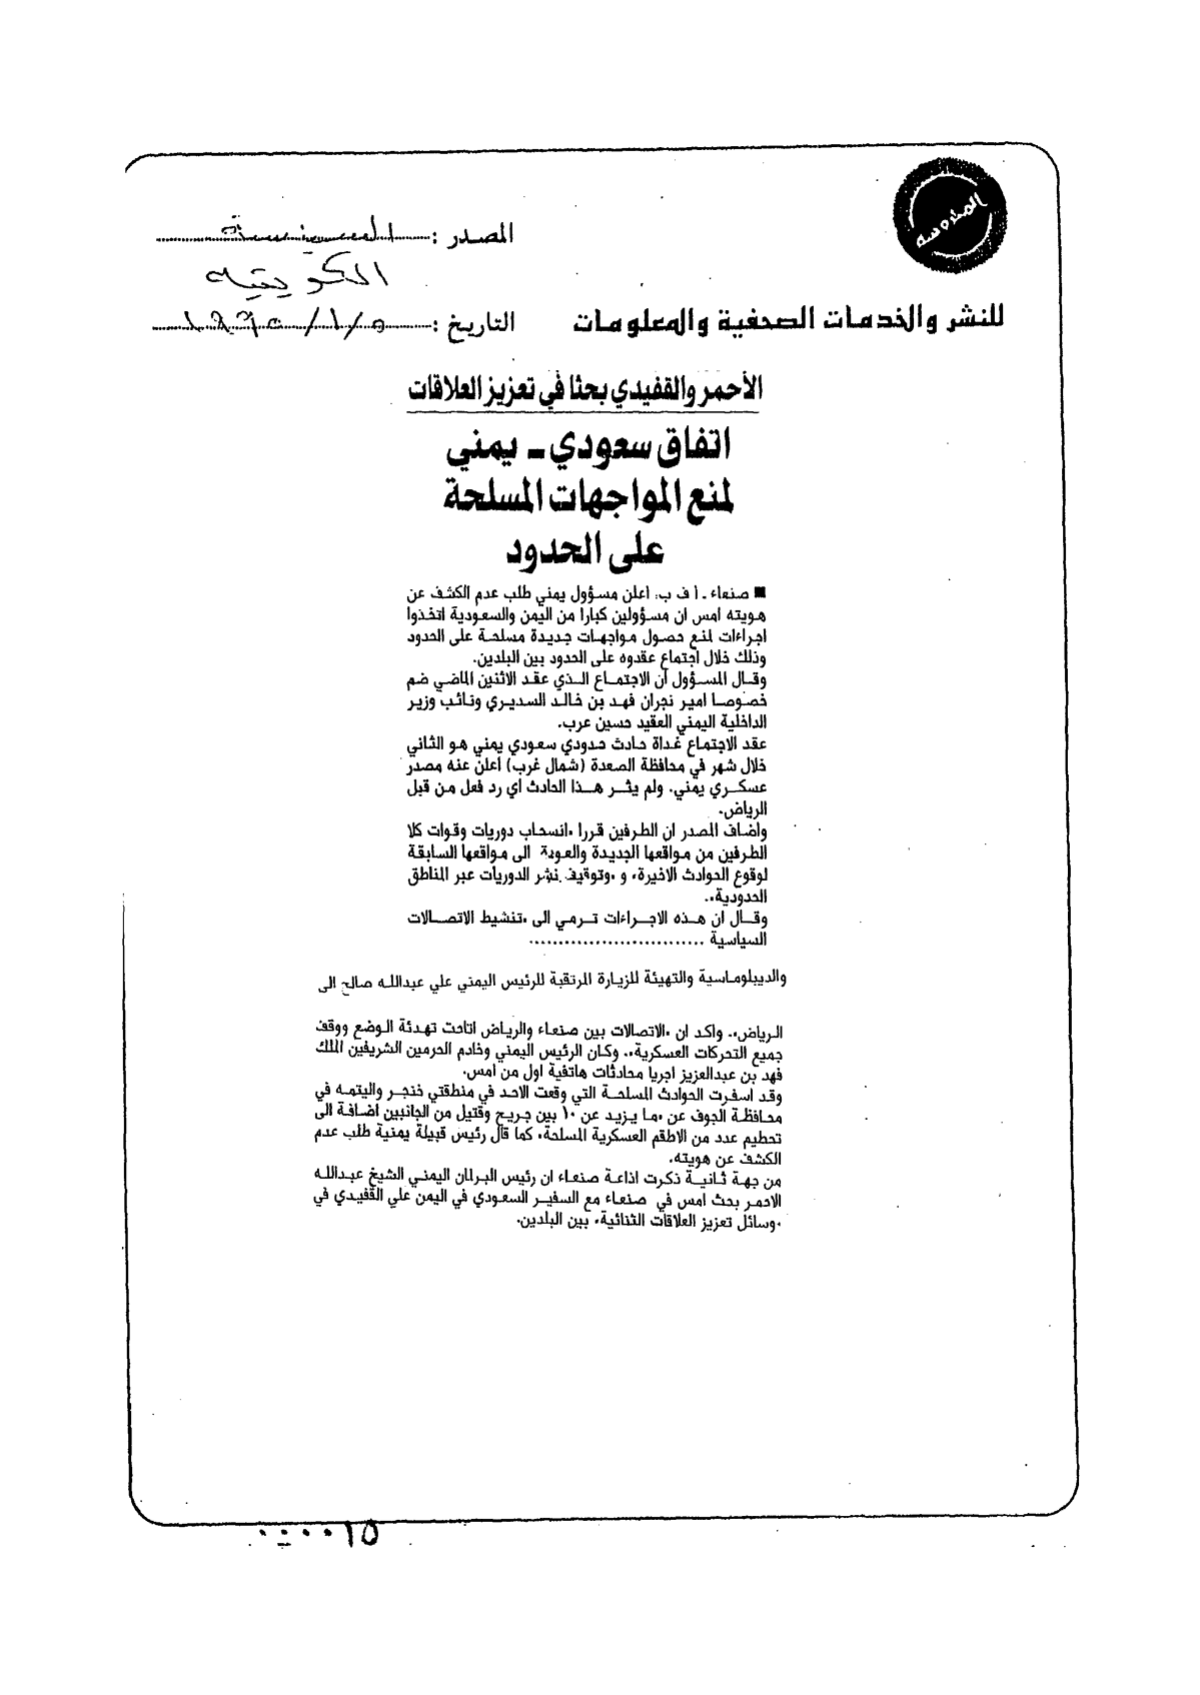 المصدر :
الكويتيه
للنشر والخدمات الصحفية والمعلومات
التاريخ : ٥/١/١٩٩٥
الأحمر والقفيدي بحثا في تعزيز العلاقات
اتفاق سعودي ـ يمني
لمنع المواجهات المسلحة
على الحدود
■ صنعاء ـ أ ف ب: اعلن مسؤول يمني طلب عدم الكشف عن
هويته امس ان مسؤولين كبارا من اليمن والسعودية اتخذوا
اجراءات لمنع حصول مواجهات جديدة مسلحة على الحدود
وذلك خلال اجتماع عقدوه على الحدود بين البلدين.
وقال المسؤول أن الاجتماع الذي عقد الاثنين الماضي ضم
خصوصا امير نجران فهد بن خالد السديري ونائب وزير
الداخلية اليمني العقيد حسين عرب.
عقد الاجتماع غداة حادث حدودي سعودي يمني هو الثاني
خلال شهر في محافظة الصعدة (شمال غرب) أعلن عنه مصدر
عسكري يمني. ولم يثر هذا الحادث اي رد فعل من قبل
الرياض.
واضاف المصدر ان الطرفين قررا «انسحاب دوريات وقوات كلا
الطرفين من مواقعها الجديدة والعودة الى مواقعها السابقة
لوقوع الحوادث الاخيرة» و «وتوقيف نشر الدوريات عبر المناطق
الحدودية».
وقال ان هذه الاجراءات ترمي الى «تنشيط الاتصالات
السياسية ..............................
والديبلوماسية والتهيئة للزيارة المرتقبة للرئيس اليمني علي عبدالله صالح الى
الرياض». واكد ان «الاتصالات بين صنعاء والرياض اتاحت تهدئة الوضع ووقف
جميع التحركات العسكرية». وكان الرئيس اليمني وخادم الحرمين الشريفين الملك
فهد بن عبدالعزيز اجريا محادثات هاتفية اول من امس.
وقد اسفرت الحوادث المسلحة التي وقعت الاحد في منطقتي خنجر واليتمه في
محافظة الجوف عن «ما يزيد عن ١٠ بين جريح وقتيل من الجانبين اضافة الى
تحطيم عدد من الاطقم العسكرية المسلحة» كما قال رئيس قبيلة يمنية طلب عدم
الكشف عن هويته.
من جهة ثانية ذكرت اذاعة صنعاء ان رئيس البرلمان اليمني الشيخ عبدالله
الاحمر بحث امس في صنعاء مع السفير السعودي في اليمن علي القفيدي في
«وسائل تعزيز العلاقات الثنائية» بين البلدين.